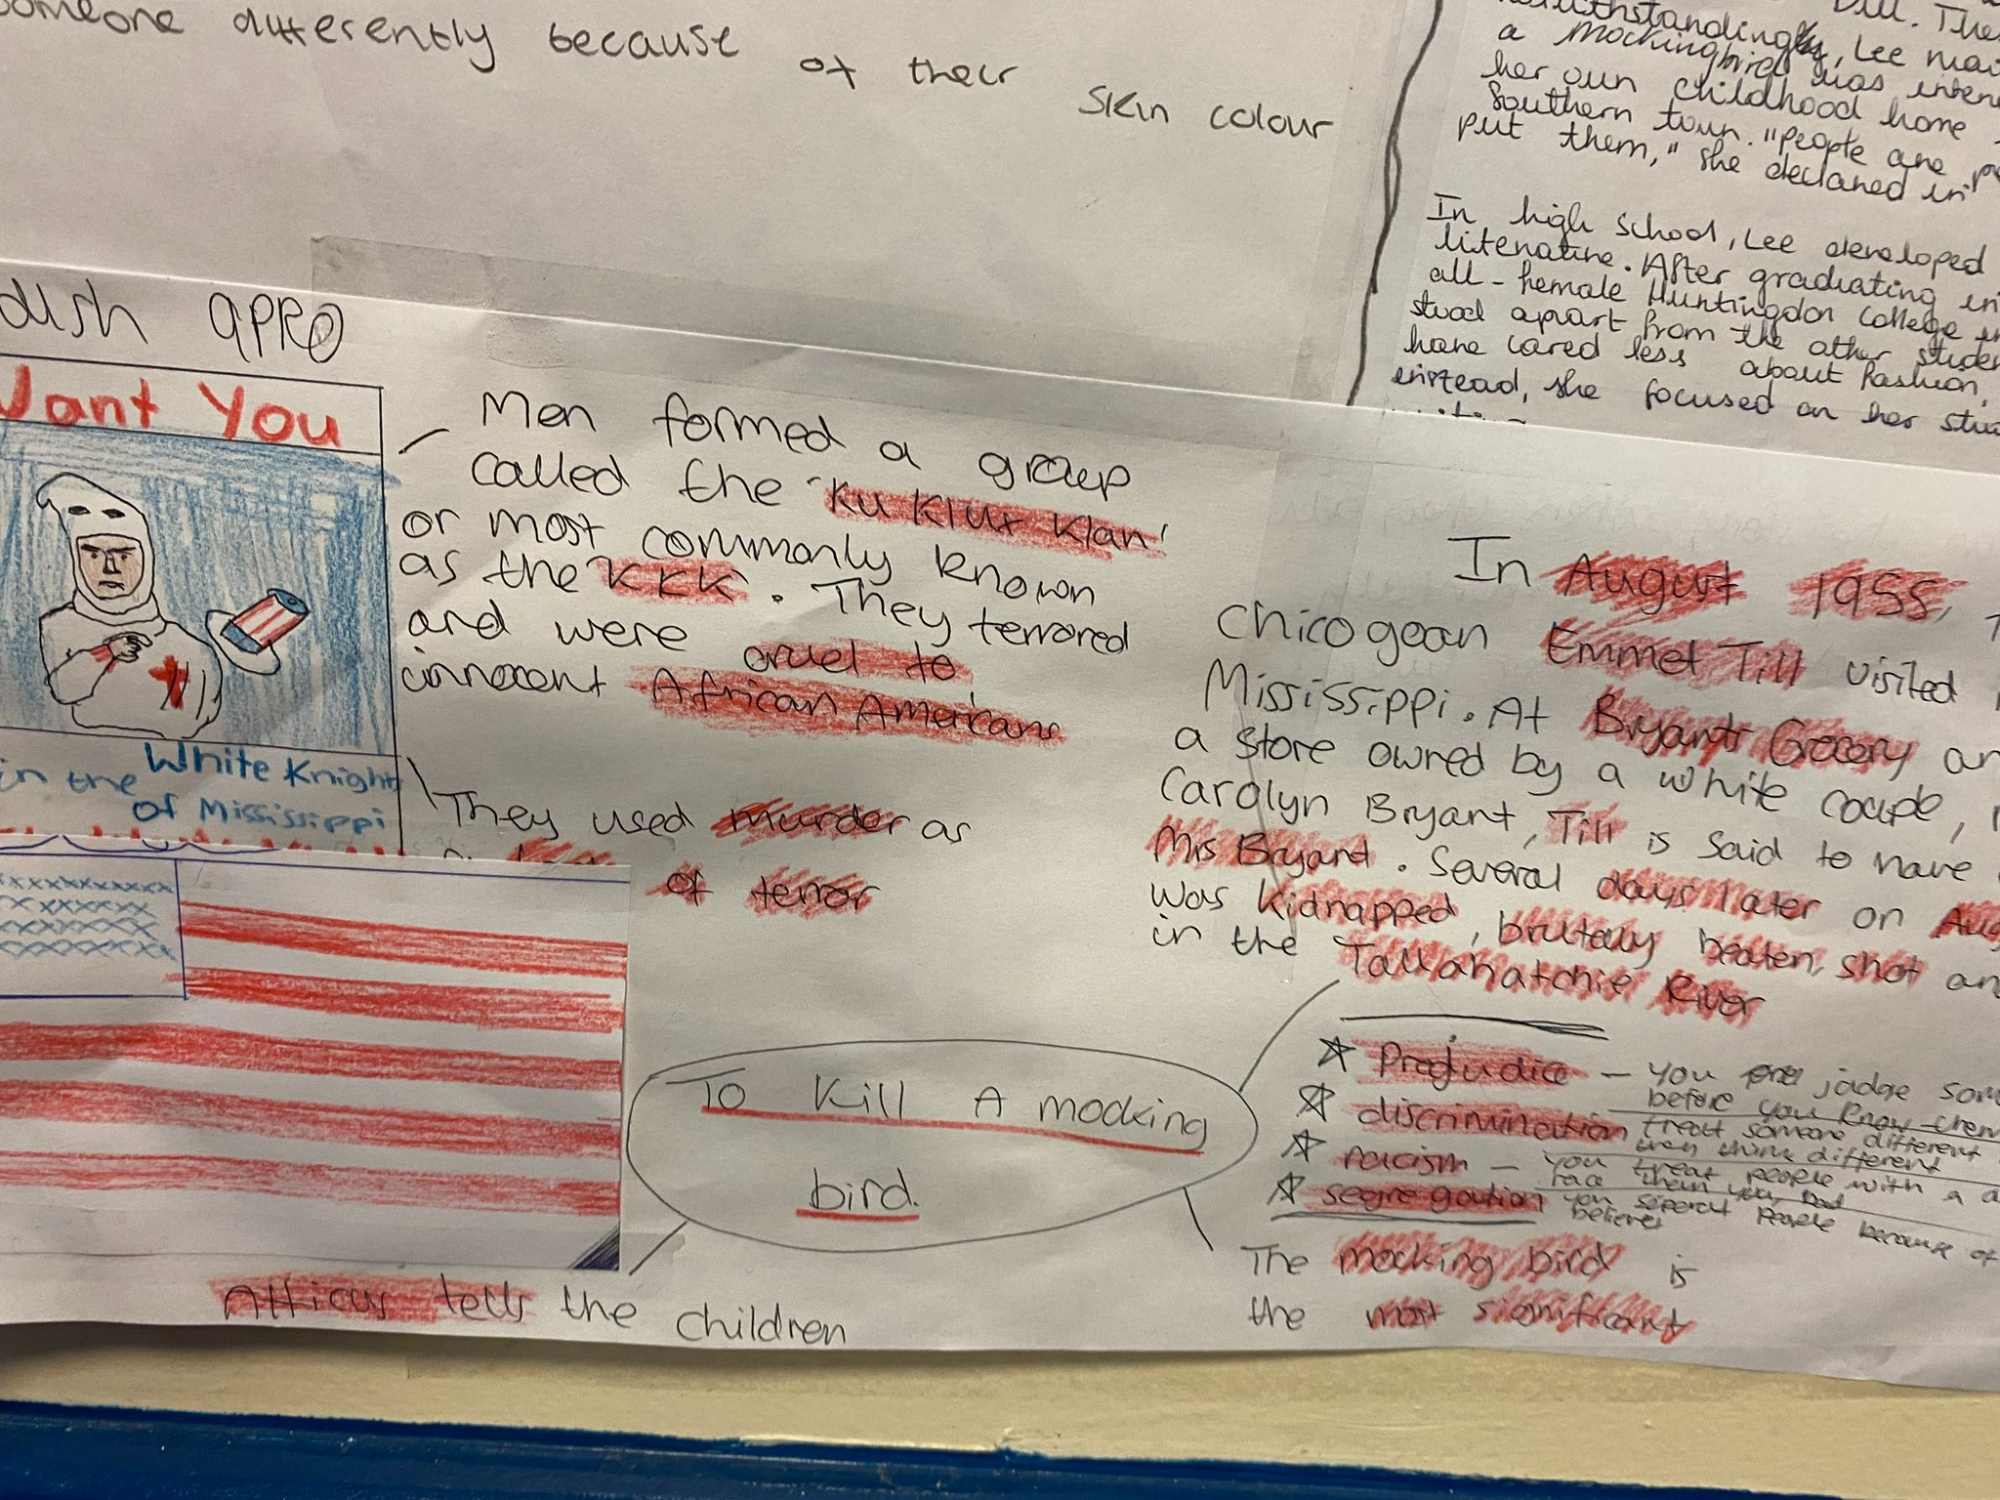 someone differently because of their skin colour
Dill. The
notwithstandingly, Lee mai
a Mockingbird was inten
her own childhood home
Southern town. "People are p
put them," she declared in
In high school, Lee developed
literature. After graduating in
all-female Huntingdon College in
stood apart from the other studen
have cared less about fashion,
instead, she focused on her stu
Want You
White Knights
in the
of Mississippi
Men formed a group
called the 'Ku Klux Klan'
or most commonly known
as the KKK. They terrored
and were cruel to
innocent African Americans
They used murder as
of terror
In August 1955,
Chicogoan Emmet Till visited
Mississippi. At Bryants Grocery an
a store owned by a white couple,
Carolyn Bryant, Till is said to have
Mrs Bryant. Several days later on Aug
was kidnapped, brutaly beaten, shot an
in the Tallahatchie River
To Kill A mocking
bird.
Prejudice - you judge som
before you know them
discrimination treat someone different
they think different
racism - you treat people with a d
race than you, bad
segregation you seperat people because of
believes
Atticus tells the children
The mocking bird is
the most significant